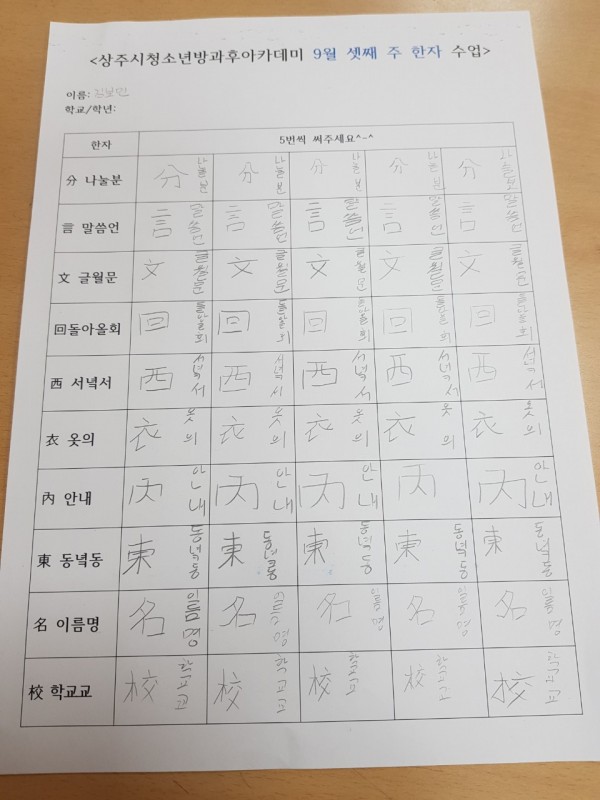 <상주시청소년방과후아카데미 9월 셋째 주 한자 수업>
이름:
학교/학년:
한자 5번씩 써주세요^-^
分 나눌분 分 나눌분 分 나눌분 分 나눌분 分 나눌분 分 나눌분
言 말씀언 言 말씀언 言 말씀언 言 말씀언 言 말씀언 言 말씀언
文 글월문 文 글월문 文 글월문 文 글월문 文 글월문 文 글월문
回돌아올회 回 돌아올회 回 돌아올회 回 돌아올회 回 돌아올회 回 돌아올회
西 서녘서 西 서녘서 西 서녘서 西 서녘서 西 서녘서 西 서녘서
衣 옷의 衣 옷의 衣 옷의 衣 옷의 衣 옷의 衣 옷의
內 안내 丙 안내 丙 안내 丙 안내 丙 丙 안내
東 동녘동 東 동녘동 東 동녘동 東 동녘동 東 동녘동 東 동녘동
名 이름명 名 이름명 名 이름명 名 이름명 名 이름명 名 이름명
校 학교교 校 학교교 校 학교교 校 학교교 校 학교교 校 학교교